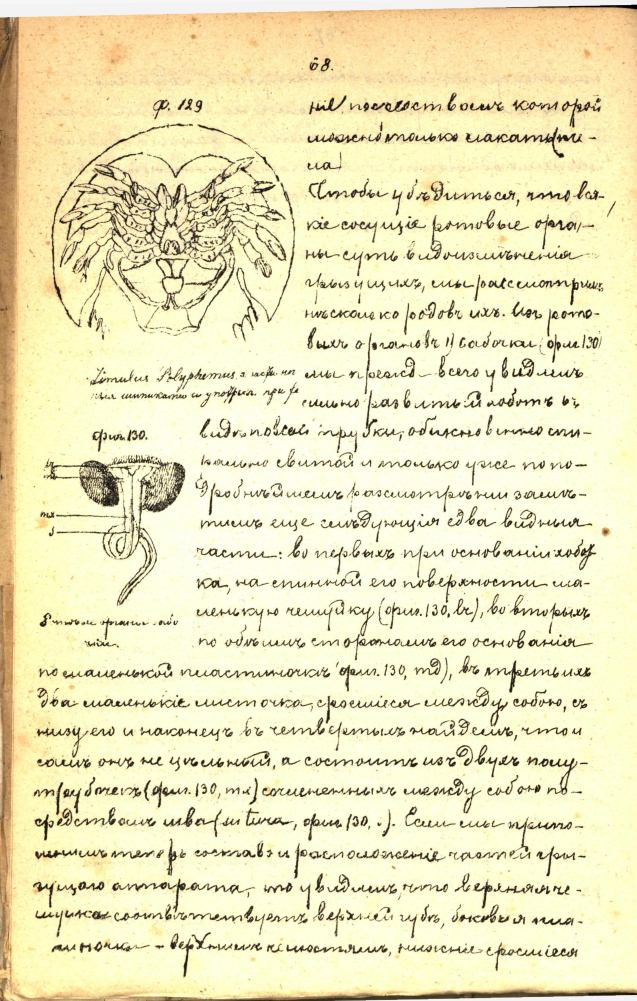 68.
ф. 129
ніе, посредствомъ которой
можно только лакать (пче-
ла)
Чтобы убѣдиться, что вся-
кіе сосущіе ротовые орга-
ны суть видоизмѣненія
грызущихъ, мы разсмотримъ
нѣсколько родовъ ихъ. Изъ рото-
выхъ органовъ 1) бабочки (фиг. 130)
мы прежде всего увидимъ
сильно развитый хоботъ въ
Limulus Polyphemus
фиг. 130.
видѣ полой трубки, обыкновенно спи-
рально свитой и только уже по по-
дробнѣйшемъ разсмотрѣніи замѣ-
тимъ еще слѣдующія едва видныя
части: во первыхъ при основаніи хобот-
ка, на спинной его поверхности ма-
ленькую чешуйку (фиг. 130, lr), во вторыхъ
по обѣимъ сторонамъ его основанія
Ротовые органы бабо
чки.
по маленькой пластиночкѣ фиг. 130, md), въ третьихъ
два маленькіе листочка, сросшіеся между собою, съ
низу его и наконецъ въ четвертыхъ найдемъ, что и
самъ онъ не цѣльный, а состоитъ изъ двухъ полу-
трубочекъ (фиг. 130, mx) сочлененныхъ между собою по-
средствомъ шва (sutura, фиг. 130, s). Если мы припо-
мнимъ теперь составъ и расположеніе частей гры-
зущаго аппарата, то увидимъ, что верхняя че-
шуйка соотвѣтствуетъ верхней губѣ, боковыя пла-
тиночки – верхнимъ челюстямъ, нижніе сросшіеся